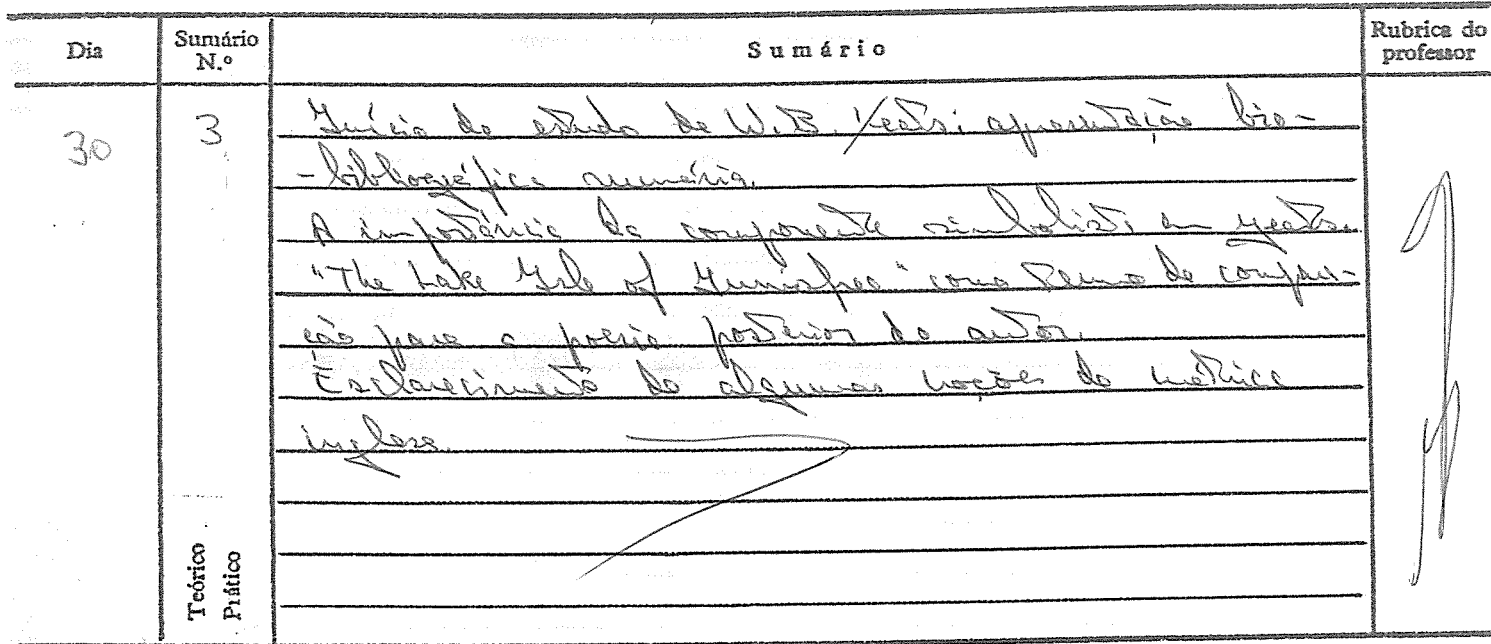 Dia
Sumário N.º
Sumário
Rubrica do professor
30
3
Início do estudo de W.B. Yeats: apresentação bio-
-bibliográfica sumária.
A importância da componente simbolista em Yeats.
"The Lake Isle of Innisfree" como termo de compara-
ção para a poesia posterior do autor.
Esclarecimento de algumas noções de métrica
inglesa.
Teórico
Prático